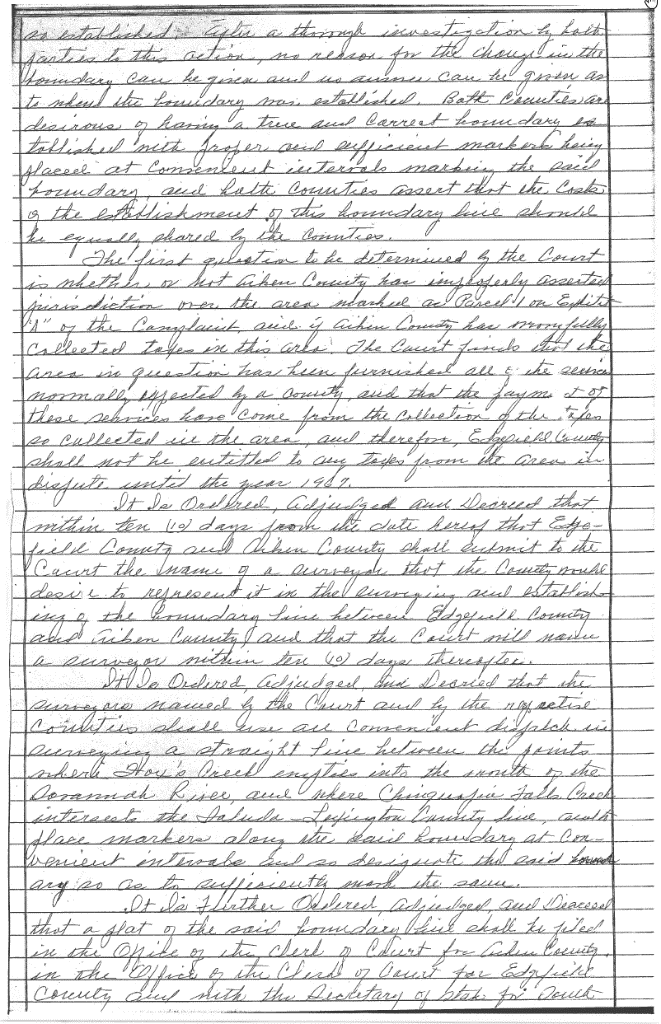 as established. After a thorough investigation by both
parties to this action, no reason for the change in the
boundary can be given and no answer can be given as
to when the boundary was established. Both Counties are
desirous of having a true and correct boundary es-
tablished with proper and sufficient markers being
placed at convenient intervals marking the said
boundary, and both Counties assert that the Costs
of the establishment of this boundary line should
be equally shared by the Counties.
The first question to be determined by the Court
is whether or not Aiken County has improperly asserted
jurisdiction over the area marked as Parcel 1 on Exhibit
"A" of the Complaint, and if Aiken County has wrongfully
collected taxes in this area. The Court finds that the
area in question has been furnished all of the services
normally effected by a county, and that the paym t of
these services have come from the collection of the taxes
so collected in the area, and therefore, Edgefield County
shall not be entitled to any taxes from the area in
dispute until the year
It Is Ordered, Adjudged and Decreed that
within ten (10) days from the date hereof that Edge-
field County and Aiken County shall submit to the
Court the name of a surveyor that the County would
desire to represent it in the surveying and establish-
ing of the boundary line between Edgefield County
and Aiken County, and that the Court will name
a surveyor within ten (10) days thereafter.
It Is Ordered, Adjudged, and Decreed that the
surveyors named by the Court and by the respective
Counties shall use all convenient dispatch in
surveying a straight line between the points
where Fox's Creek empties into the mouth of the
Savannah River, and where Chinquapin Falls Creek
intersects the Saluda - Lexington County line, and
place markers along the said boundary at con-
venient intervals and so designate the said bound
ary so as to sufficiently mark the same.
It Is Further Ordered, Adjudged, and Decreed
that a plat of the said boundary line shall be filed
in the Office of the Clerk of Court for Aiken County,
in the Office of the Clerk of Court for Edgefield
County and with the Secretary of State for South